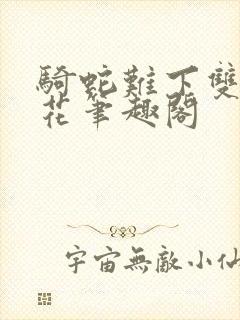 騎蛇難下雙
花筆趣閣
宇宙無敵小仙